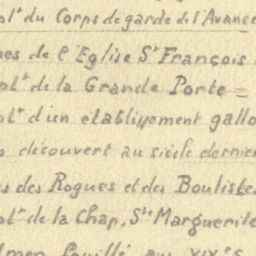 plt du Corps de garde de l'Avancé
es de l'Eglise St François
plt de la Grande Porte =
plt d'un etablissement gallo
découvert au siècle dernier
s des Rogues et des Boulistes
plt de la Chap. Ste Marguerite
fouillé au XIXe s